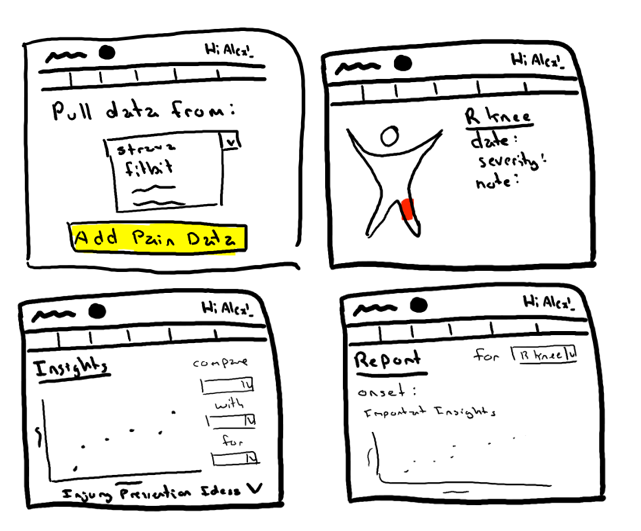 Hi Alex!
Pull data from:
strava
fitbit
Add Pain Data
Hi Alex!
R knee
date:
severity:
note:
Hi Alex!
Insights
compare
with
for
Injury Prevention Ideas
Hi Alex!
Report for R knee
onset:
Important Insights